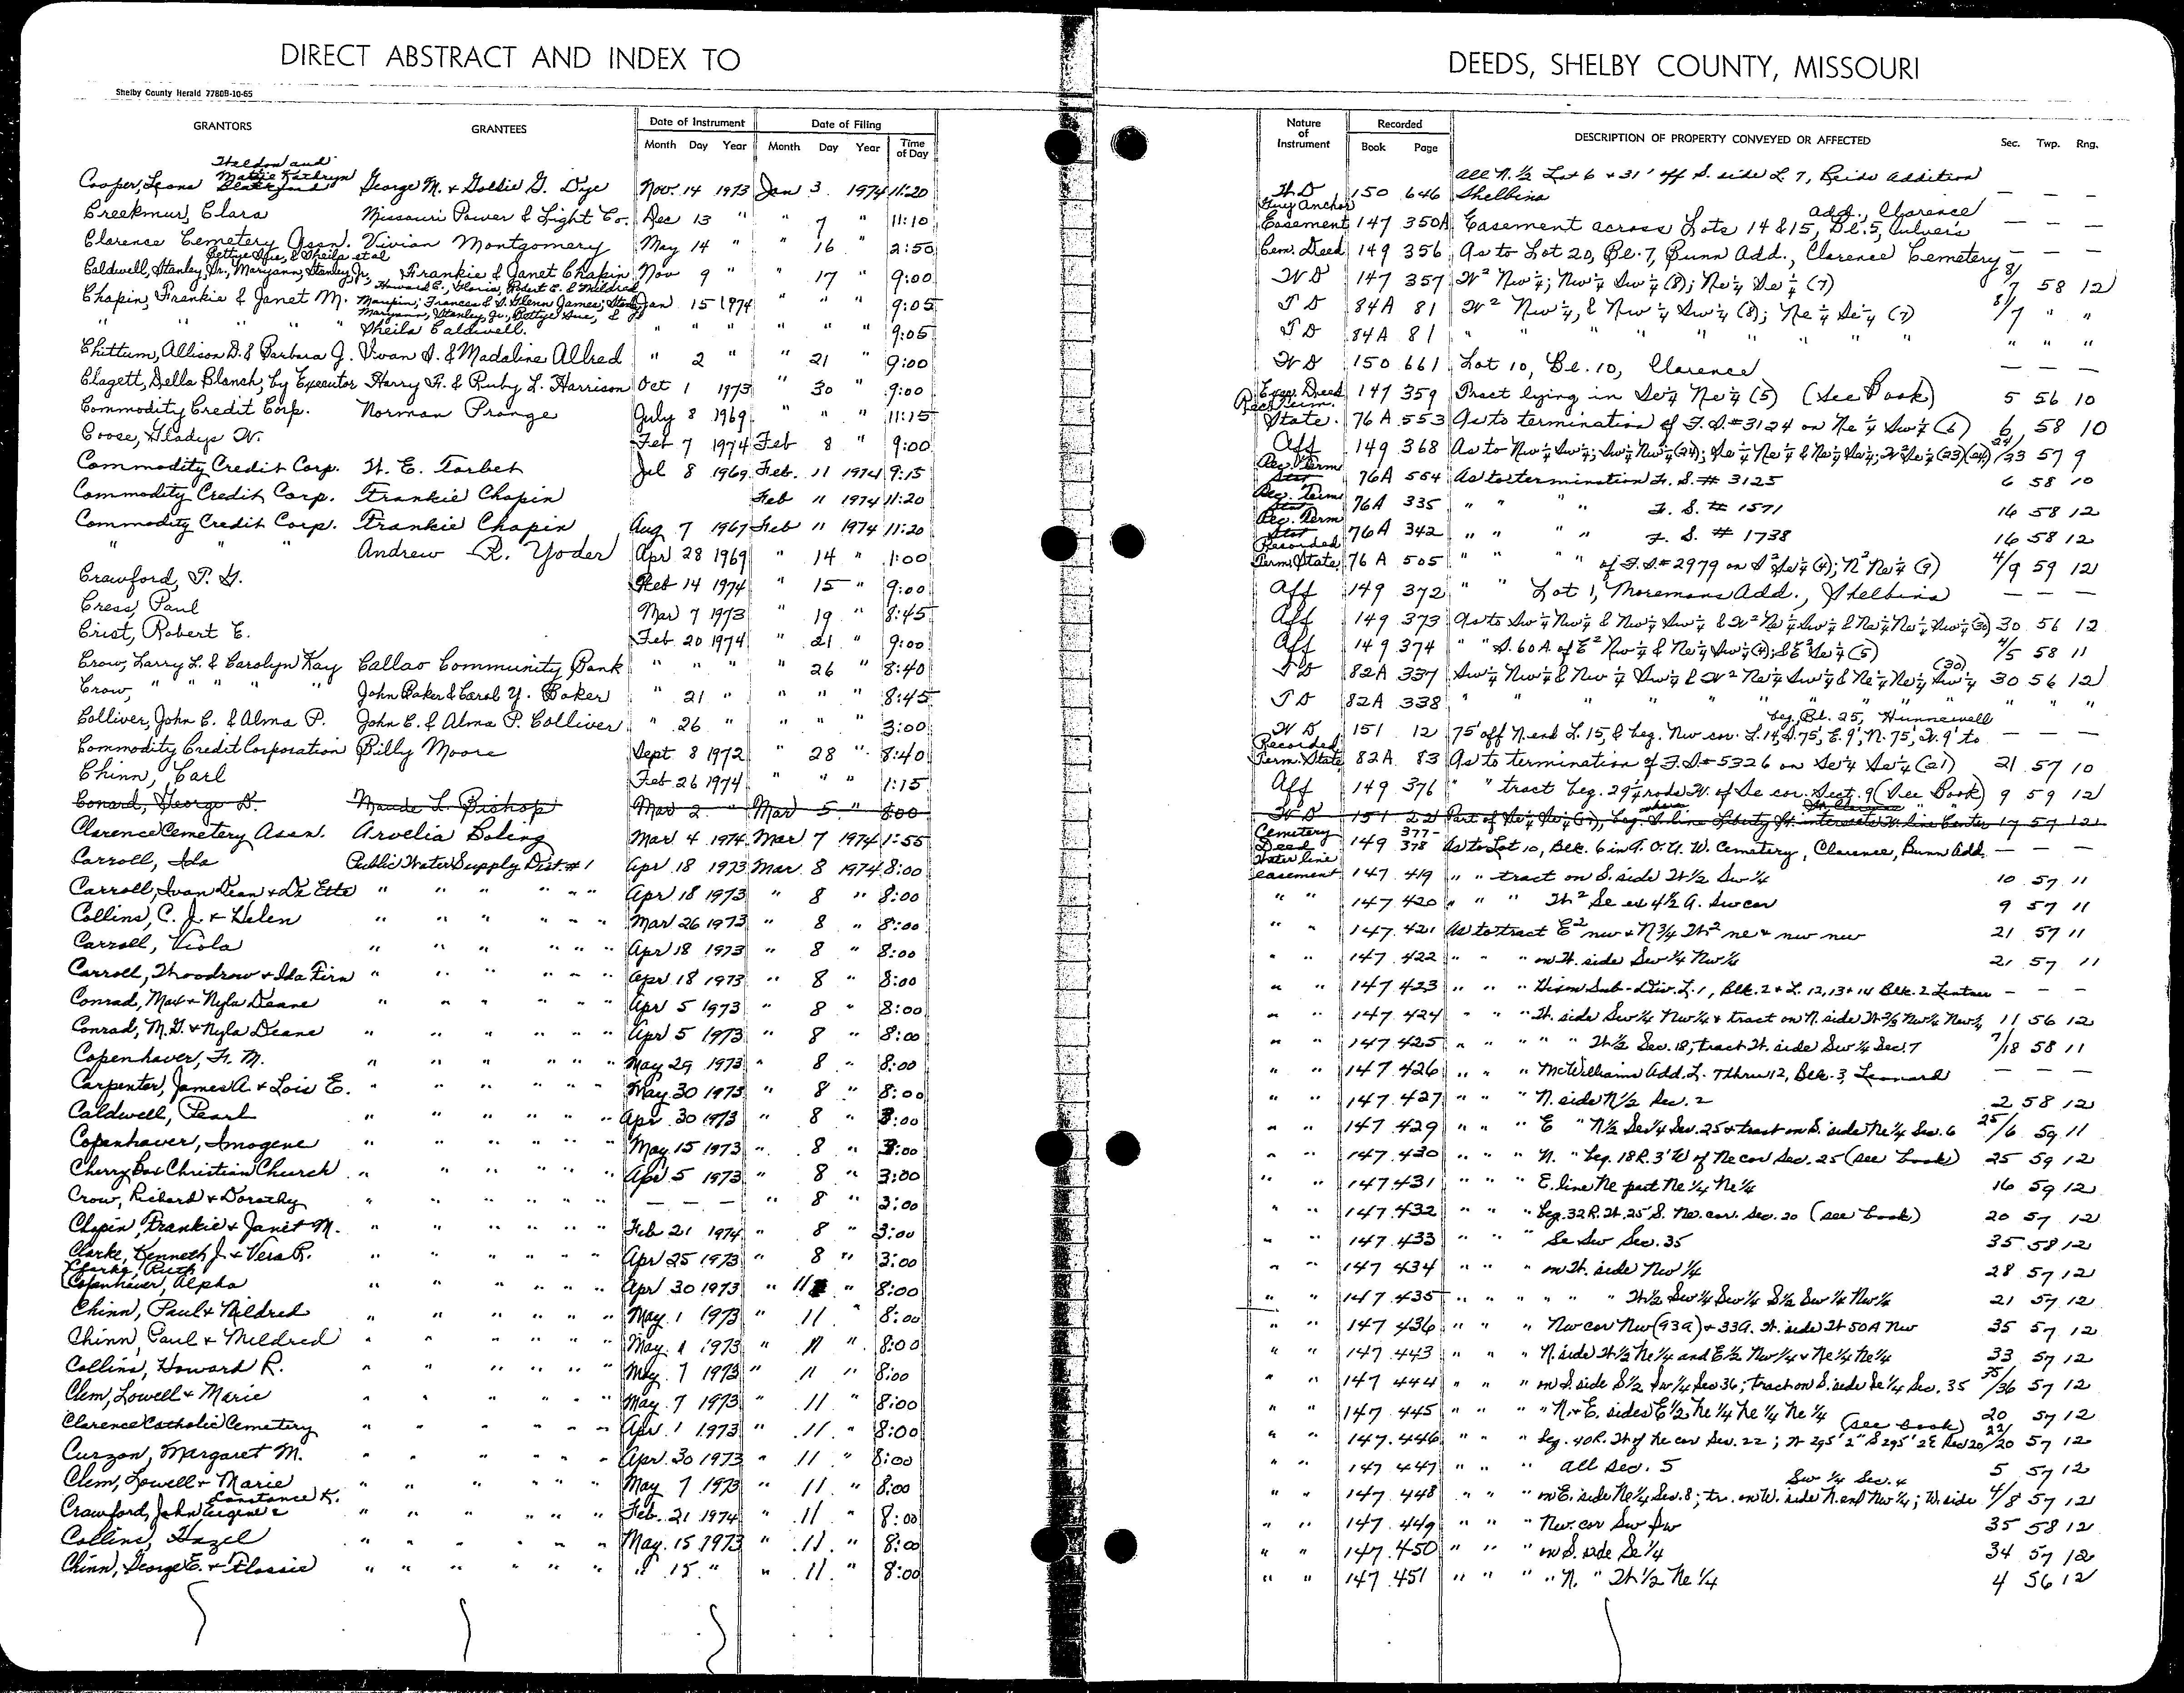 DIRECT ABSTRACT AND INDEX TO
DEEDS, SHELBY COUNTY, MISSOURI
Shelby County Herald 7780B-10-65
GRANTORS GRANTEES Date of Instrument Month Day Year Date of Filing Month Day Year Time of Day
Nature of Instrument Recorded Book Page DESCRIPTION OF PROPERTY CONVEYED OR AFFECTED Sec. Twp. Rng.
Cooper, Leona Weldon and Mattie Kathryn George M. & Goldie G. Dye Nov. 14 1973 Jan 3 1974 11:20 W D 150 646 All N. 1/2 Lot 6 & 31' off S. side L 7, Reids Addition Shelbina — — —
Creekmur, Clara Missouri Power & Light Co. Dec 13 " " 7 " 11:10 Guy Anchor Easement 147 350A Easement across Lots 14 & 15, Bl. 5, Culver's add., Clarence — — —
Clarence Cemetery Assn. Vivian Montgomery May 14 " " 16 " 2:50 Cem. Deed 149 356 As to Lot 20, Bl. 7, Bunn Add., Clarence Cemetery — — —
Caldwell, Stanley Sr., Maryann, Stanley Jr., Bettye Sue, & Sheila et al Frankie & Janet Chapin Nov 9 " " 17 " 9:00 W D 147 357 W² Nw¼; Nw¼ Sw¼ (8); Ne¼ Se¼ (7) 8/7 58 12
Chapin, Frankie & Janet M. Howard E., Gloria, Robert E. & Mildred Maupin; Frances & S. Glenn James; Stanley Jan 15 1974 " " " 9:05 T D 84A 81 W² Nw¼, & Nw¼ Sw¼ (8); Ne¼ Se¼ (7) 8/7 " "
" " " " Maryann, Stanley, Jr., Bettye Sue, & Sheila Caldwell. " " " " " " 9:05 T D 84A 81 " " " " " " " " "
Chittum, Allison D. & Barbara J. Ivan S. & Madaline Allred " 2 " " 21 " 9:00 W D 150 661 Lot 10, Bl. 10, Clarence — — —
Clagett, Della Blanch, by Executor Harry F. & Ruby L. Harrison Oct 1 1973 " 30 " 9:00 Exec. Deed 147 359 Tract lying in Se¼ Ne¼ (5) (See Book) 5 56 10
Commodity Credit Corp. Norman Prange July 8 1969 " " " 11:15 Rec. Term. State. 76A 553 As to termination of F.S.#3124 on Ne¼ Sw¼ (6) 6 58 10
Coose, Gladys W. Feb 7 1974 Feb 8 " 9:00 Aff 149 368 As to Nw¼ Sw¼; Sw¼ Nw¼ (24); Se¼ Ne¼ & Ne¼ Se¼; W² Se¼ (23) (24) 24/23 57 9
Commodity Credit Corp. W. E. Torbet Jul 8 1969 Feb. 11 1974 9:15 Rec. Term Stat 76A 554 As to termination F.S. # 3125 6 58 10
Commodity Credit Corp. Frankie Chapin Feb 11 1974 11:20 Rec. Term Stat 76A 335 " " " F. S. # 1571 16 58 12
Commodity Credit Corp. Frankie Chapin Aug 7 1967 Feb 11 1974 11:20 Rec. Term Stat 76A 342 " " " F. S. # 1738 16 58 12
" " " Andrew R. Yoder Apr 28 1969 " 14 " 1:00 Recorded Term. State 76A 505 " " " of F.S.#2979 on S² Se¼ (4); N² Ne¼ (9) 4/9 59 12
Crawford, P. G. Feb 14 1974 " 15 " 9:00 Aff 149 372 " " Lot 1, Moremans Add., Shelbina — — —
Cress, Paul Mar 7 1973 " 19 " 8:45 Aff 149 373 As to Sw¼ Nw¼ & Nw¼ Sw¼ & W² Ne¼ Sw¼ & Ne¼ Ne¼ Sw¼ (30) 30 56 12
Crist, Robert E. Feb 20 1974 " 21 " 9:00 Aff 149 374 " " S. 60A of E² Nw¼ & Ne¼ Sw¼ (4); & E² Se¼ (5) 4/5 58 11
Crow, Larry L. & Carolyn Kay Callao Community Bank " " " " 26 " 8:40 T D 82A 337 Sw¼ Nw¼ & Nw¼ Sw¼ & W² Ne¼ Sw¼ & Ne¼ Ne¼ Sw¼ (30) 30 56 12
Crow, " " " " John Baker & Carol Y. Baker " 21 " " " " 8:45 T D 82A 338 " " " " " " " "
Colliver, John C. & Alma P. John C. & Alma P. Colliver " 26 " " " " 3:00 W D 151 12 75' off N. end L. 15, & beg. Nw cor. L. 14, S. 75', E. 9', N. 75', W. 9' to beg, Bl. 25, Hunnewell — — —
Commodity Credit Corporation Billy Moore Sept 8 1972 " 28 " 8:40 Recorded Term. State 82A 83 As to termination of F.S.#5326 on Se¼ Se¼ (21) 21 57 10
Chinn, Carl Feb 26 1974 " " " 1:15 Aff 149 376 " " tract beg. 29¼ rods W. of Se cor. Sect. 9 (See Book) 9 59 12
Conard, George D. Maude L. Bishop Mar 2 " Mar 5 " 8:00 W D 151 22 Part of Se¼ Se¼ (17), beg. S. line Liberty St. intersects W. line Center 17 57 12
Clarence Cemetery Assn. Arvelia Boling Mar 4 1974 Mar 7 1974 1:55 Cemetery Deed 149 377-378 As to Lot 10, Blk. 6 in A. O. U. W. Cemetery, Clarence, Bunn Add. — — —
Carroll, Ida Public Water Supply Dist #1 Apr 18 1973 Mar. 8 1974 8:00 Water line easement 147 419 " " tract on S. side W 1/2 Sw 1/4 10 57 11
Carroll, Ivan Dean & De Etta " " " " " Apr 18 1973 " 8 " 8:00 " " 147 420 " " " W² Se ex 4½ A. Sw cor 9 57 11
Collins, C. J. & Helen " " " " " Mar 26 1973 " 8 " 8:00 " " 147 421 As to tract E² nw & N 3/4 W² ne & nw nw 21 57 11
Carroll, Viola " " " " " Apr 18 1973 " 8 " 8:00 " " 147 422 " " " on W. side Sw 1/4 Nw 1/4 21 57 11
Carroll, Woodrow & Ida Fern " " " " " Apr 18 1973 " 8 " 8:00 " " 147 423 " " " Hirn Sub-Div. L. 1, Blk. 2 & L. 12, 13 & 14 Blk. 2 Lentner — — —
Conrad, Max & Nyla Deane " " " " " Apr 5 1973 " 8 " 8:00 " " 147 424 " " " W. side Sw 1/4 Nw 1/4 & tract on N. side W 2/3 Nw 1/4 Nw 1/4 11 56 12
Conrad, M. G. & Nyla Deane " " " " " Apr 5 1973 " 8 " 8:00 " " 147 425 " " " " W 1/2 Sec. 18; tract W. side Sw 1/4 Sec. 7 7/18 58 11
Copenhaver, F. M. " " " " " May 29 1973 " 8 " 8:00 " " 147 426 " " " McWilliams Add. L. 7 thru 12, Blk. 3, Leonard — — —
Carpenter, James A. & Lois E. " " " " " May 30 1973 " 8 " 8:00 " " 147 427 " " " N. side N 1/2 Sec. 2 2 58 12
Caldwell, Pearl " " " " " Apr 30 1973 " 8 " 8:00 " " 147 429 " " " E " N 1/2 Se 1/4 Sec. 25 & tract on S. side Ne 1/4 Sec. 6 25/6 59 11
Copenhaver, Imogene " " " " " May 15 1973 " 8 " 8:00 " " 147 430 " " " N. " beg. 18 R. 3' W of Ne cor Sec. 25 (see book) 25 59 12
Cherry Box Christian Church " " " " " Apr 5 1973 " 8 " 8:00 " " 147 431 " " " E. line Ne part Ne 1/4 Ne 1/4 16 59 12
Crow, Richard & Dorothy " " " " " — — — " 8 " 8:00 " " 147 432 " " " beg. 32 R. W. 25' S. Ne. cor. Sec. 20 (see book) 20 57 12
Chapin, Frankie & Janet M. " " " " " Feb 21 1974 " 8 " 8:00 " " 147 433 " " " Se Sw Sec. 35 35 58 12
Clarke, Kenneth J. & Vera R. " " " " " Apr 25 1973 " 8 " 8:00 " " 147 434 " " " on W. side Nw 1/4 28 57 12
Clarke, Ruth
Copenhaver, Alpha " " " " " Apr 30 1973 " 11 " 8:00 " " 147 435 " " " " " W 1/2 Sw 1/4 Sw 1/4 S 1/2 Sw 1/4 Nw 1/4 21 57 12
Chinn, Paul & Mildred " " " " " May 1 1973 " 11 " 8:00 " " 147 436 " " " Nw cor Nw (93a) & 33A. W. side W 50A Nw 35 57 12
Chinn, Paul & Mildred " " " " " May 1 1973 " 11 " 8:00 " " 147 443 " " " N. side W 1/2 Ne 1/4 and E 1/2 Nw 1/4 & Ne 1/4 Ne 1/4 33 57 12
Collins, Howard R. " " " " " May 7 1973 " 11 " 8:00 " " 147 444 " " " on S. side S 1/2 Sw 1/4 Sec 36; tract on S. side Se 1/4 Sec. 35 35/36 57 12
Clem, Lowell & Marie " " " " " May 7 1973 " 11 " 8:00 " " 147 445 " " " N. & E. sides E 1/2 Ne 1/4 Ne 1/4 Ne 1/4 20 57 12
Clarence Catholic Cemetery " " " " " Apr. 1 1973 " 11 " 8:00 " " 147 446 " " " beg. 40 R. W of Ne cor Sec. 22; N 295' 2" S 295' 2 E Sec 20 (see book) 22/20 57 12
Curzon, Margaret M. " " " " " Apr. 30 1973 " 11 " 8:00 " " 147 447 " " " all Sec. 5 5 57 12
Clem, Lowell & Marie " " " " " May 7 1973 " 11 " 8:00 " " 147 448 " " " on E. side Ne 1/4 Sec. 8; tr. on W. side N. end Nw 1/4; W. side Sw 1/4 Sec. 4 4/8 57 12
Crawford, John Eugene & Constance K. " " " " " Feb. 21 1974 " 11 " 8:00 " " 147 449 " " " Nw. cor Sw Sw 35 58 12
Collins, Hazel " " " " " May 15 1973 " 11 " 8:00 " " 147 450 " " " on S. side Se 1/4 34 57 12
Chinn, George E. & Flossie " " " " " " 15 " " 11 " 8:00 " " 147 451 " " " " N. " W 1/2 Ne 1/4 4 56 12